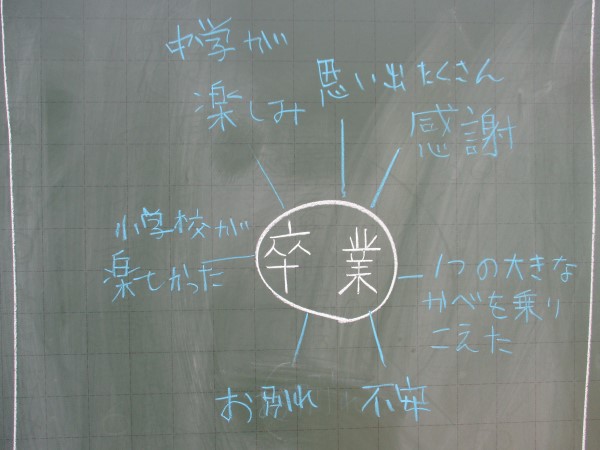 中学が
楽しみ
思い出たくさん
感謝
小学校が
楽しかった
卒業
1つの大きな
かべを乗り
こえた
お別れ
不安